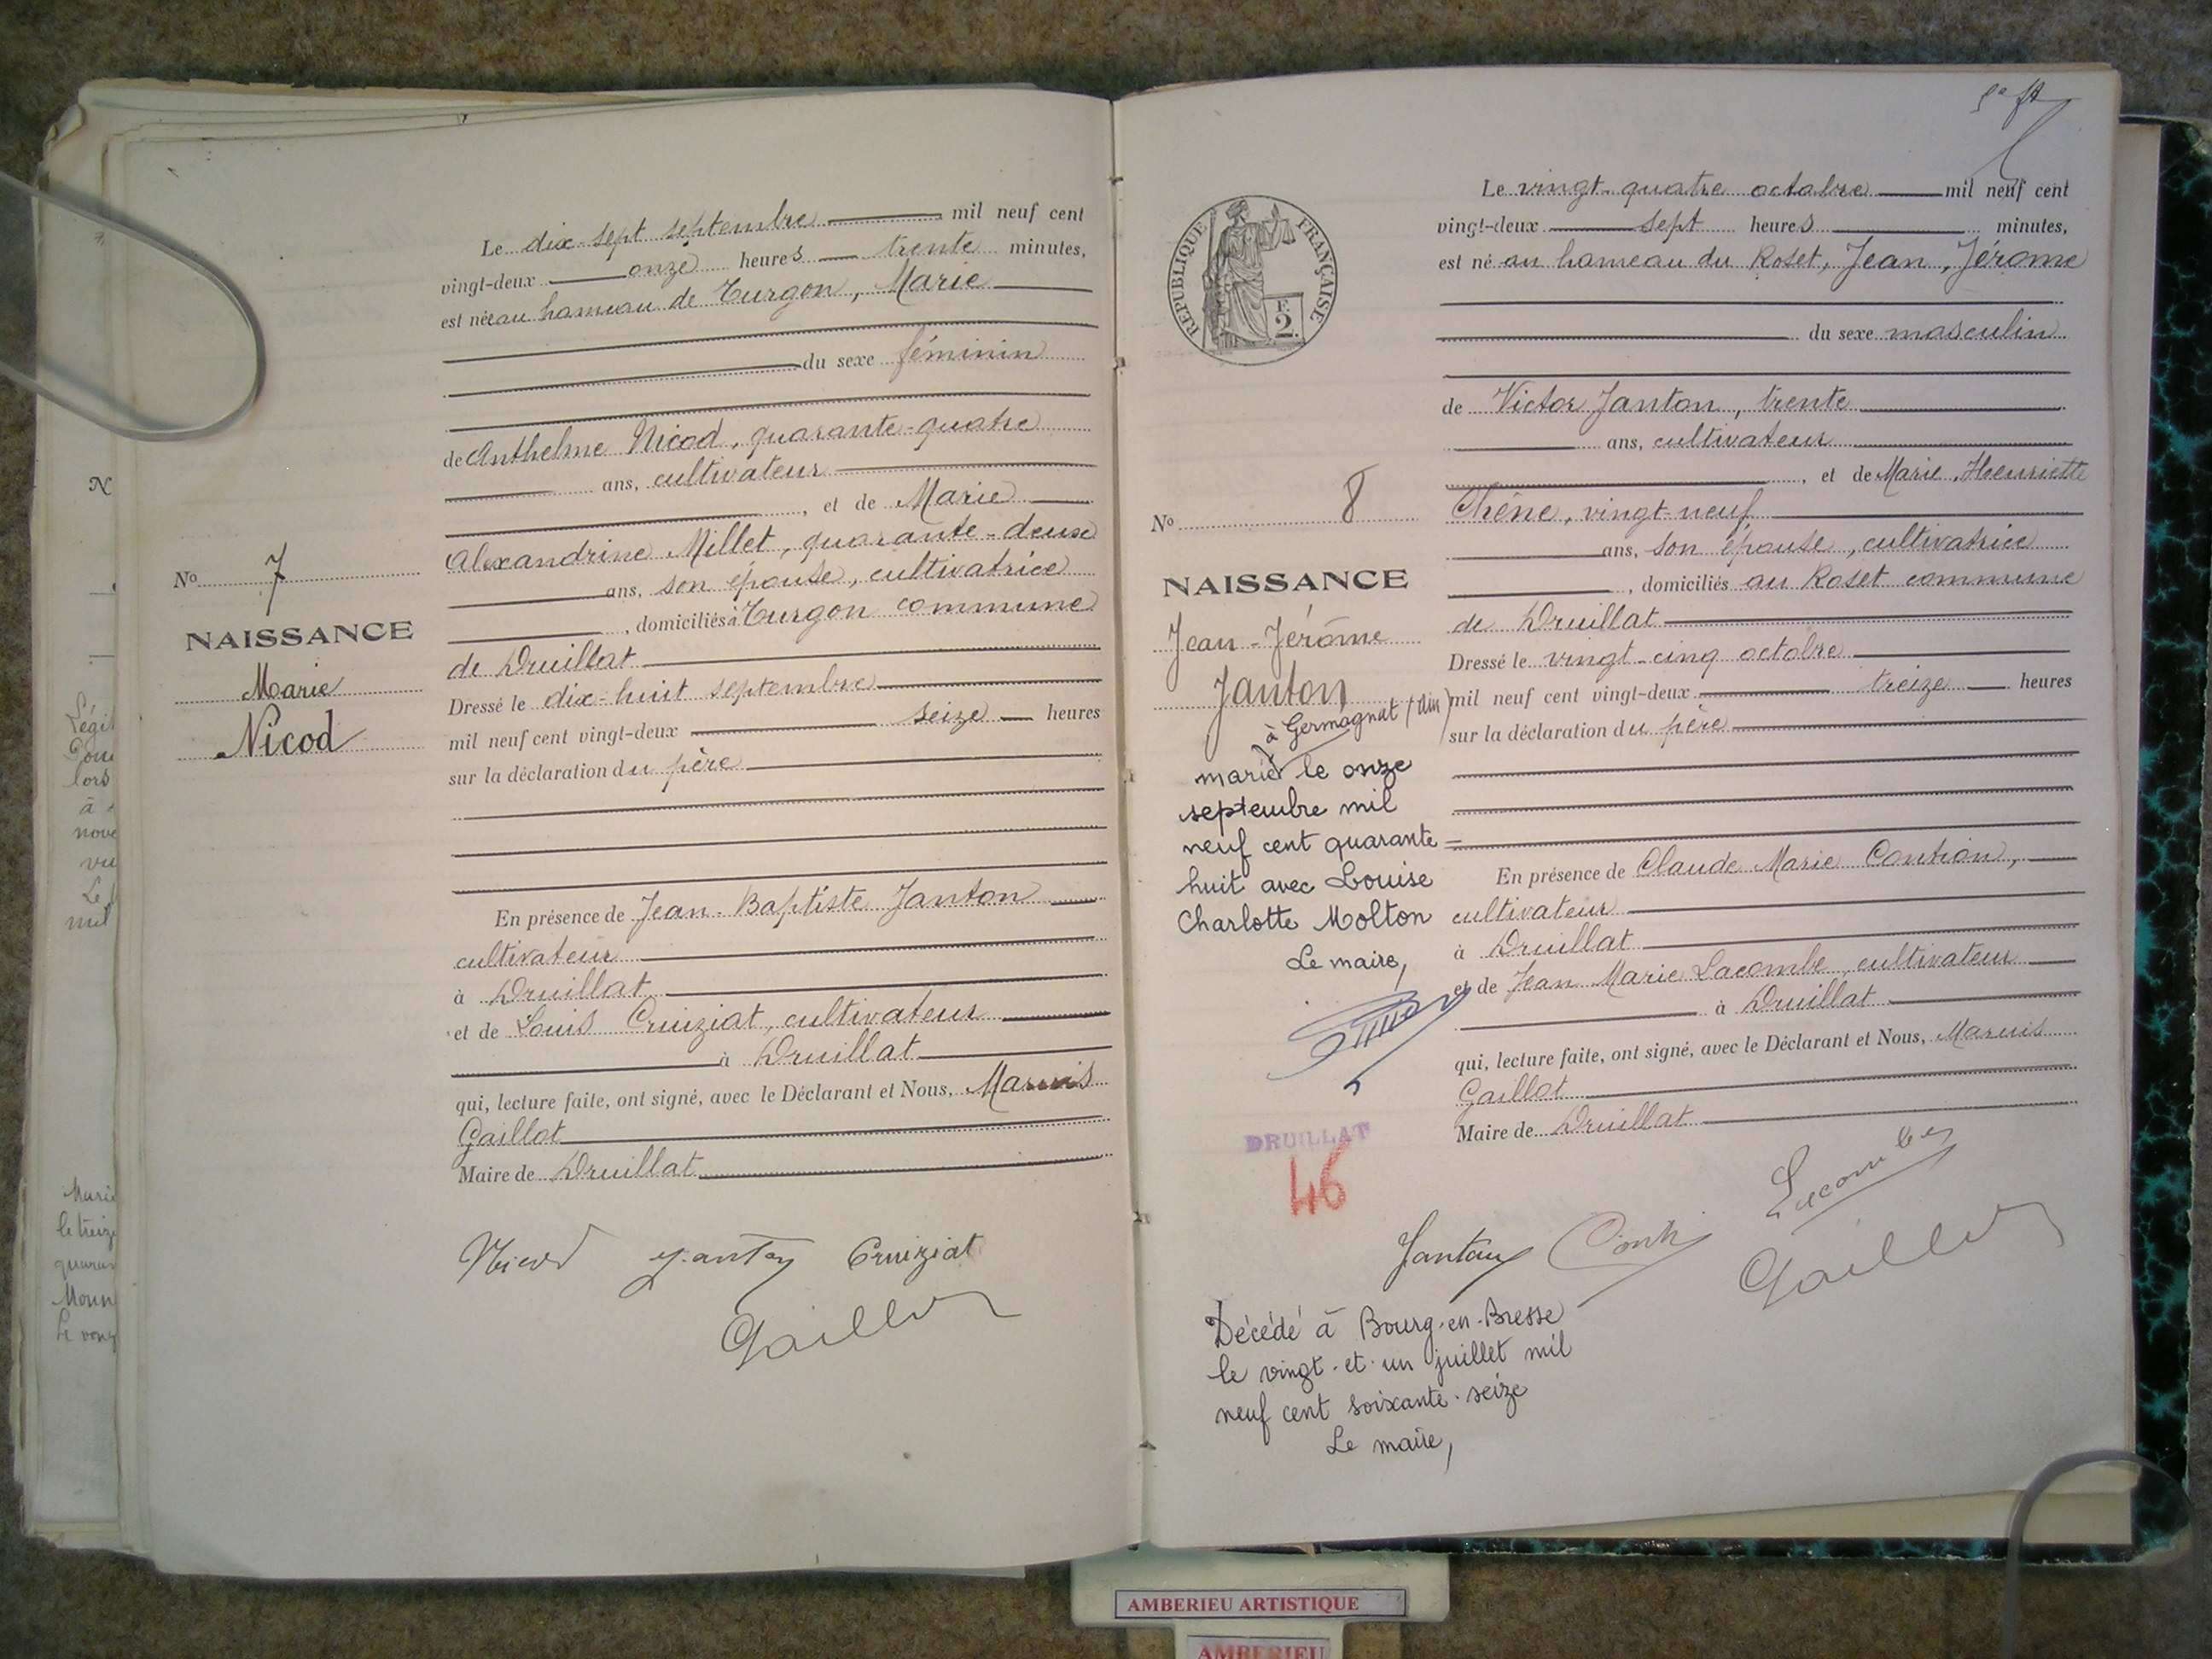 Le dix-sept septembre mil neuf cent
vingt-deux onze heures trente minutes,
est née au hameau de Turgon, Marie
du sexe féminin
de Anthelme Nicod, quarante-quatre
ans, cultivateur
, et de Marie
Alexandrine Millet, quarante-deux
ans, son épouse, cultivatrice
, domiciliés à Turgon commune
de Druillat
Dressé le dix-huit septembre
mil neuf cent vingt-deux seize heures
sur la déclaration du père
En présence de Jean-Baptiste Janton
cultivateur
à Druillat
et de Louis Cruiziat, cultivateur
à Druillat
qui, lecture faite, ont signé, avec le Déclarant et Nous, Marius
Gaillot
Maire de Druillat
Nicod Janton Cruiziat
Gaillot
No 7
NAISSANCE
Marie
Nicod
Le vingt-quatre octobre mil neuf cent
vingt-deux sept heures minutes,
est né au hameau du Roset, Jean, Jérome
du sexe masculin
de Victor Janton, trente
ans, cultivateur
, et de Marie, Henriette
Chêne, vingt-neuf
ans, son épouse, cultivatrice
, domiciliés au Roset commune
de Druillat
Dressé le vingt-cinq octobre
mil neuf cent vingt-deux treize heures
sur la déclaration du père
En présence de Claude Marie Contion,
cultivateur
à Druillat
et de Jean Marie Lacombe, cultivateur
à Druillat
qui, lecture faite, ont signé, avec le Déclarant et Nous, Marius
Gaillot
Maire de Druillat
Janton Lacombe
Gaillot
REPUBLIQUE FRANÇAISE
F.
2.
No 8
NAISSANCE
Jean-Jérôme
Janton
à Germagnat (Ain)
marié le onze
septembre mil
neuf cent quarante=
huit avec Louise
Charlotte Molton
Le maire,
DRUILLAT
46
Décédé à Bourg-en-Bresse
le vingt-et-un juillet mil
neuf cent soixante-seize
Le maire,
AMBERIEU ARTISTIQUE
AMBERIEU